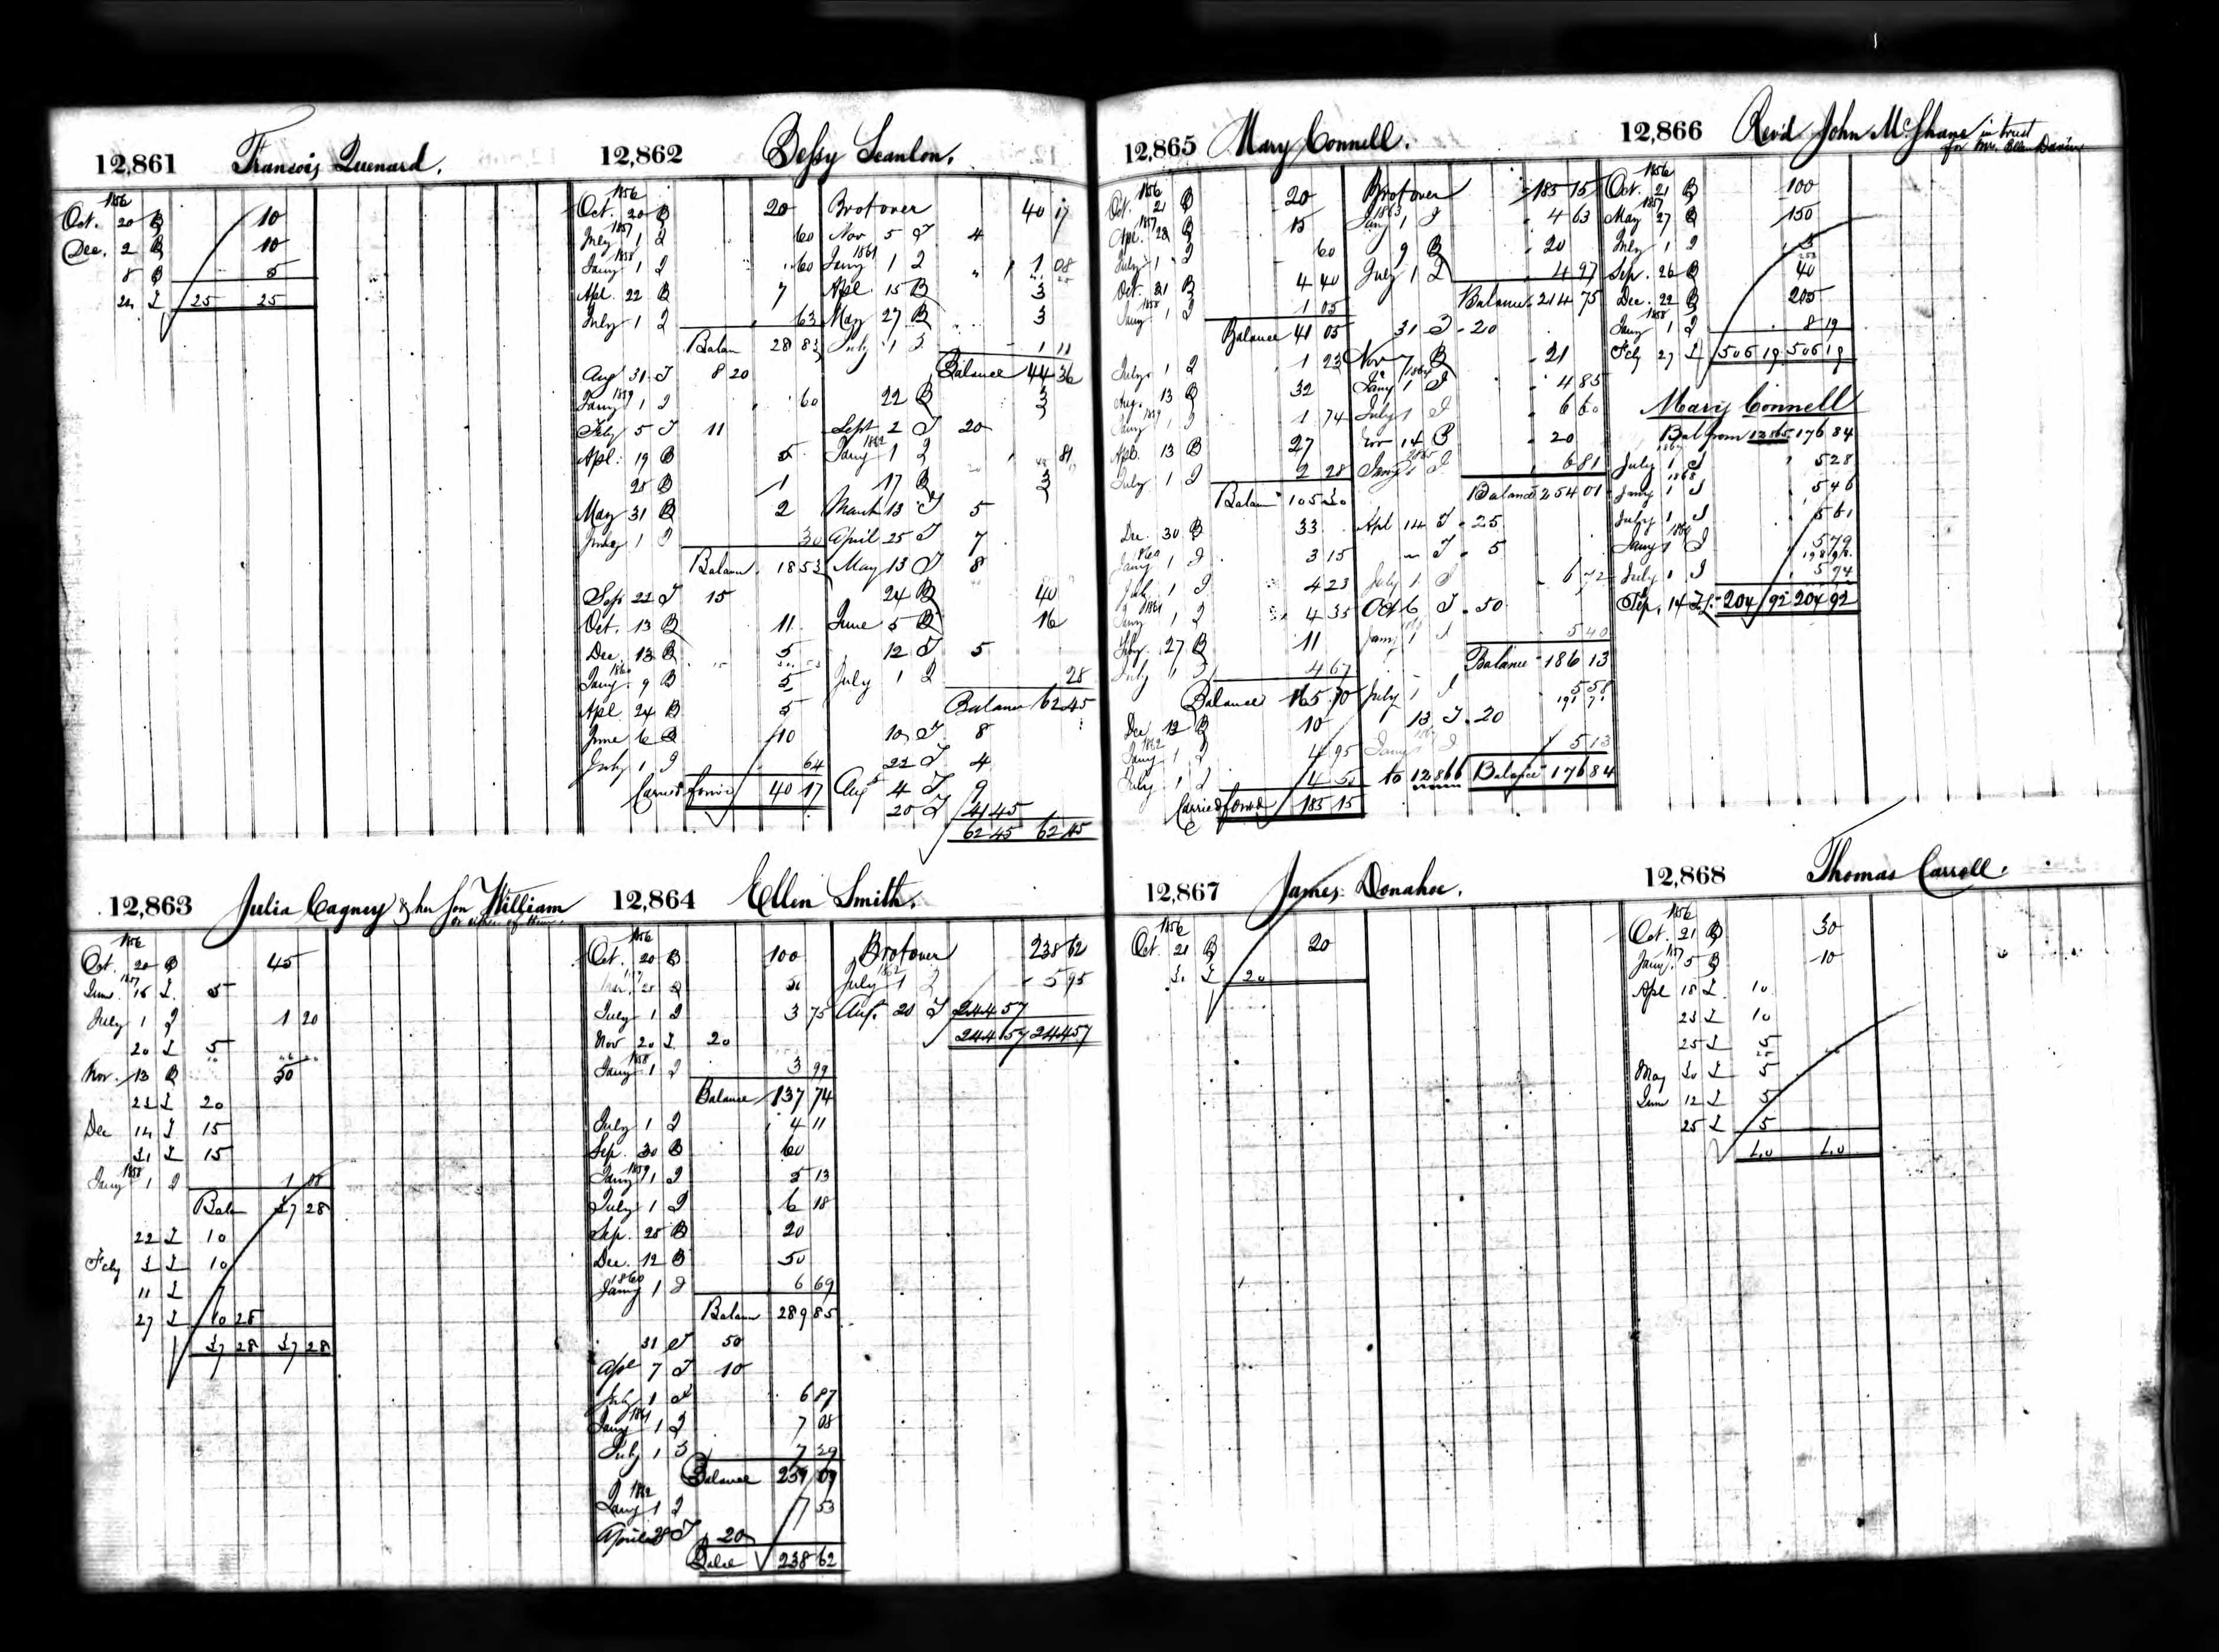 12,861 Francois Quenard.
1856
Oct. 20 B 10
Dec. 2 B 10
8 B 5
25 25
12,862 Bessy Scanlon.
1856
Oct. 20 B 20
1857
July 1 I 60
1858
Jany 1 I 60
Apl. 22 B 7
July 1 I 63
Balan 28 83
Aug 31 T 8 20
1859
Jany 1 I 60
Feby 5 T 11
Apl. 19 B 5
25 B 1
May 31 B 2
July 1 I 30
Balan. 18 53
Sep 22 T 15
Oct. 13 B 11
Dec. 13 B 5
1860
Jany 9 B 5
Apl. 24 B 5
June 6 B 10
July 1 I 64
Carried forwd 40 17
Brot over 40 17
Nov 5 T 4
1861
Jany 1 I 1 08
Apl. 15 B 3
May 27 B 3
July 1 I 1 11
Balance 44 36
22 B 3
Sept 2 T 20
1862
Jany 1 I 81
17 B 3
March 13 T 5
April 25 T 7
May 13 T 8
24 B 40
June 5 B 16
12 T 5
July 1 I 28
Balance 62 45
10 T 8
22 T 4
Aug 4 T 9
20 T 41 45
62 45 62 45
12,863 Julia Cagney & her Son William
or either of them.
1856
Oct. 20 B 45
1857
June 15 T. 5
July 1 I 1 20
20 T 5
Nov. 13 B 50
20
Dec 14 T 15
31 T 15
1858
Jany 1 I 1 08
Balan 37 28
22 T 10
Feby 10
11 T 7
27 T 10 28
37 28 37 28
12,864 Ellen Smith.
1856
Oct. 20 B 100
July 1 I 3 75
Nov 20 T. 20
1858
Jany 1 I 3 99
Balance 137 74
July 1 I 4 11
Sep. 30 B 60
1859
Jany 1 I 5 13
July 1 I 6 18
Sep. 25 B 20
Dec. 12 B 50
1860
Jany 1 I 6 69
Balan 289 85
31 T 50
Apl 7 T 10
July 1 I 6 87
1861
Jany 1 I 7 08
July 1 I 7 29
Balance 259 09
1862
Jany 1 I 7 53
April 28 T 20
238 62
Brot over 238 62
1862
July 1 I 5 95
Aug. 20 T 244 57
244 57 244 57
12,865 Mary Connell.
1856
Oct. 21 B 20
1857
Apl. 28 B 15
July 1 I 60
Oct. 21 B 4 40
1858
Jany 1 I 1 05
Balance 41 05
July 1 I 1 23
Aug. 13 B 32
1859
Jany 1 I 1 74
Apl. 13 B 27
July 1 I 2 28
Balan 105 30
Dec. 30 B 33
1860
Jany 1 I 3 15
July 1 I 4 23
1861
Jany 1 I 4 35
27 B 11
July 1 I 4 67
Balance 165 70
Dec 12 B 10
1862
Jany 1 I 4 95
July 1 I 4 50
Carried forwd 185 15
Brot over 185 15
1863
Jany 1 I 4 63
9 B 20
July 1 I 4 97
Balance 214 75
31 T 20
Nov 7 B 21
1864
Jany 1 I 4 85
July 1 I 6 60
Nov 14 B 20
1865
Jany 1 I 6 81
Balance 254 01
Apl 14 T 25
T 5
July 1 I 6 72
Oct 6 T 50
Jany 1 I 5 40
Balance 186 13
July 1 I 5 58
13 T 20
Jany 1 I 5 13
to 12866 Balance 176 84
12,866 Revd. John McShane in trust
for Mrs. Ellen
1856
Oct. 21 B 100
1857
May 27 B 150
July 1 I 3
Sep. 26 B 40
Dec. 22 B 205
1858
Jany 1 I 8 19
Feby 27 T 506 19 506 19
Mary Connell
Bal from 12865 176 84
1867
July 1 I 5 28
1868
Jany 1 I 5 46
July 1 I 5 61
1869
Jany 1 I 5 79
July 1 I 5 94
Sep. 14 204 92 204 92
12,867 James Donahoe.
1856
Oct 21 B 20
20
12,868 Thomas Carroll.
1856
Oct. 21 B 30
1857
Jany. 5 B 10
Apl 18 T 10
23 T 10
25 T 5
May 5
June 12 T 5
25 T 5
40 40